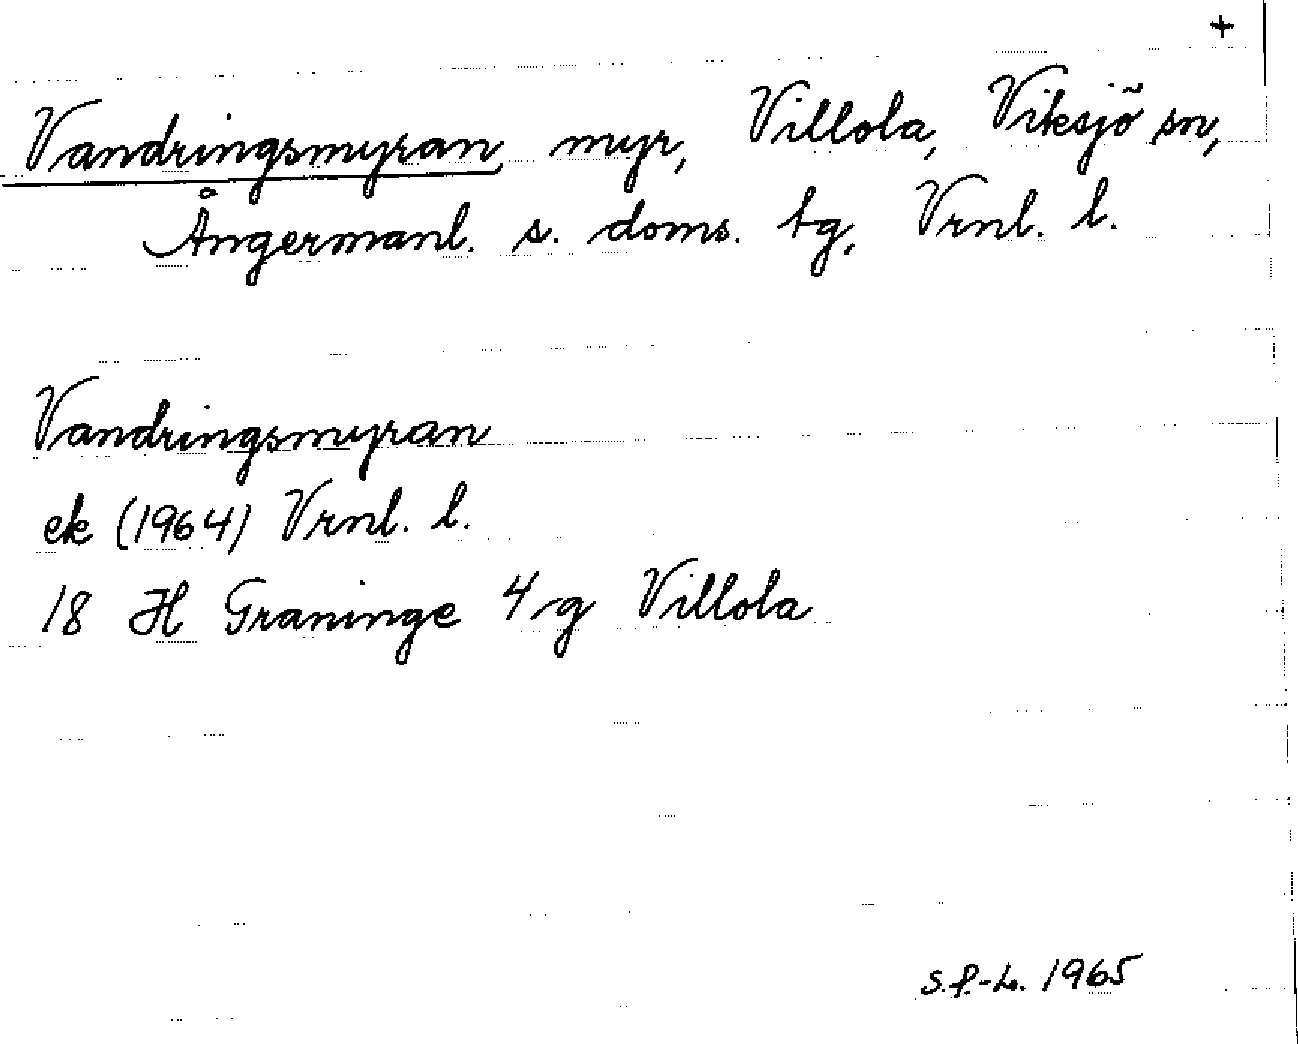 +
Vandringsmyran, myr, Villola, Viksjö sn,
Ångermanl. s. doms. tg, Vrnl. l.
Vandringsmyran
ek (1964) Vrnl. l.
18 H Graninge 4 g Villola
S.f.-L. 1965